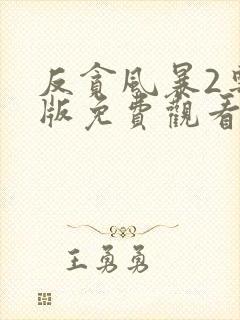 反貪風暴2粵
版免費觀看
王勇勇